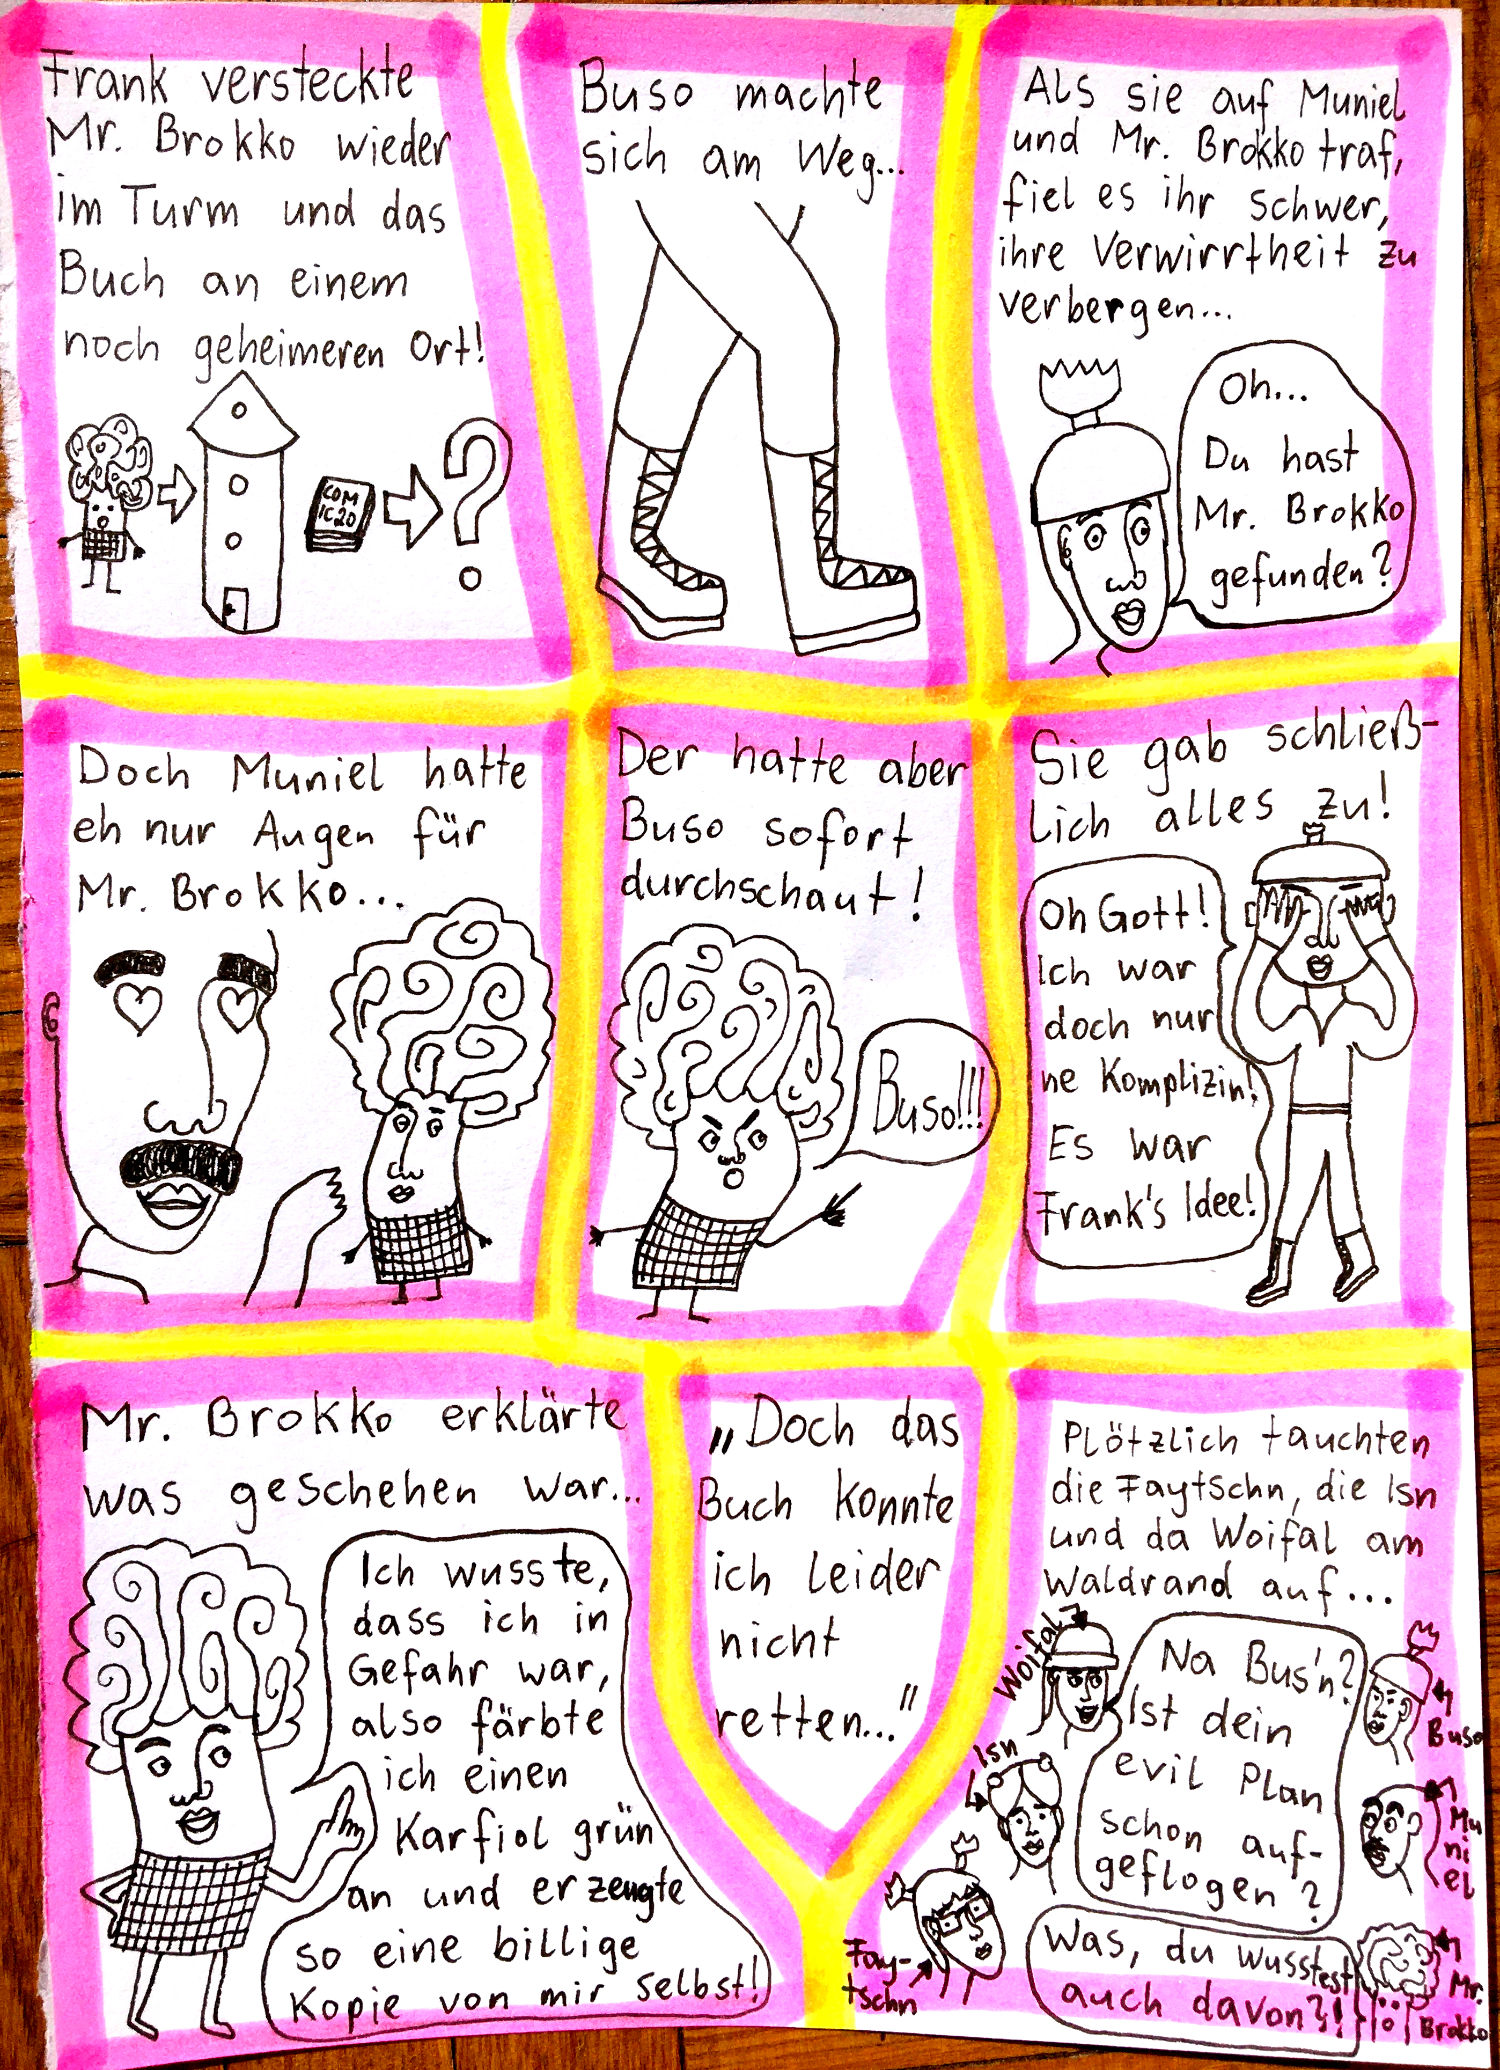 Frank versteckte
Mr. Brokko wieder
im Turm und das
Buch an einem
noch geheimeren Ort!
COM
IC 20
?
Buso machte
sich am Weg...
Als sie auf Muniel
und Mr. Brokko traf,
fiel es ihr schwer,
ihre Verwirrtheit zu
verbergen...
Oh...
Du hast
Mr. Brokko
gefunden?
Doch Muniel hatte
eh nur Augen für
Mr. Brokko...
Der hatte aber
Buso sofort
durchschaut!
Buso!!!
Sie gab schließ-
lich alles zu!
Oh Gott!
Ich war
doch nur
ne Komplizin!
Es war
Frank's Idee!
Mr. Brokko erklärte
was geschehen war...
Ich wusste,
dass ich in
Gefahr war,
also färbte
ich einen
Karfiol grün
an und erzeugte
so eine billige
Kopie von mir selbst!
„Doch das
Buch konnte
ich leider
nicht
retten..."
Plötzlich tauchten
die Faytschn, die Isn
und da Woifal am
Waldrand auf...
Woifal
Na Bus'n?
Ist dein
evil Plan
schon auf-
geflogen?
Buso
Isn
Mu
ni
el
Fay-
tschn
Was, du wusstest
auch davon?!
Mr.
Brokko